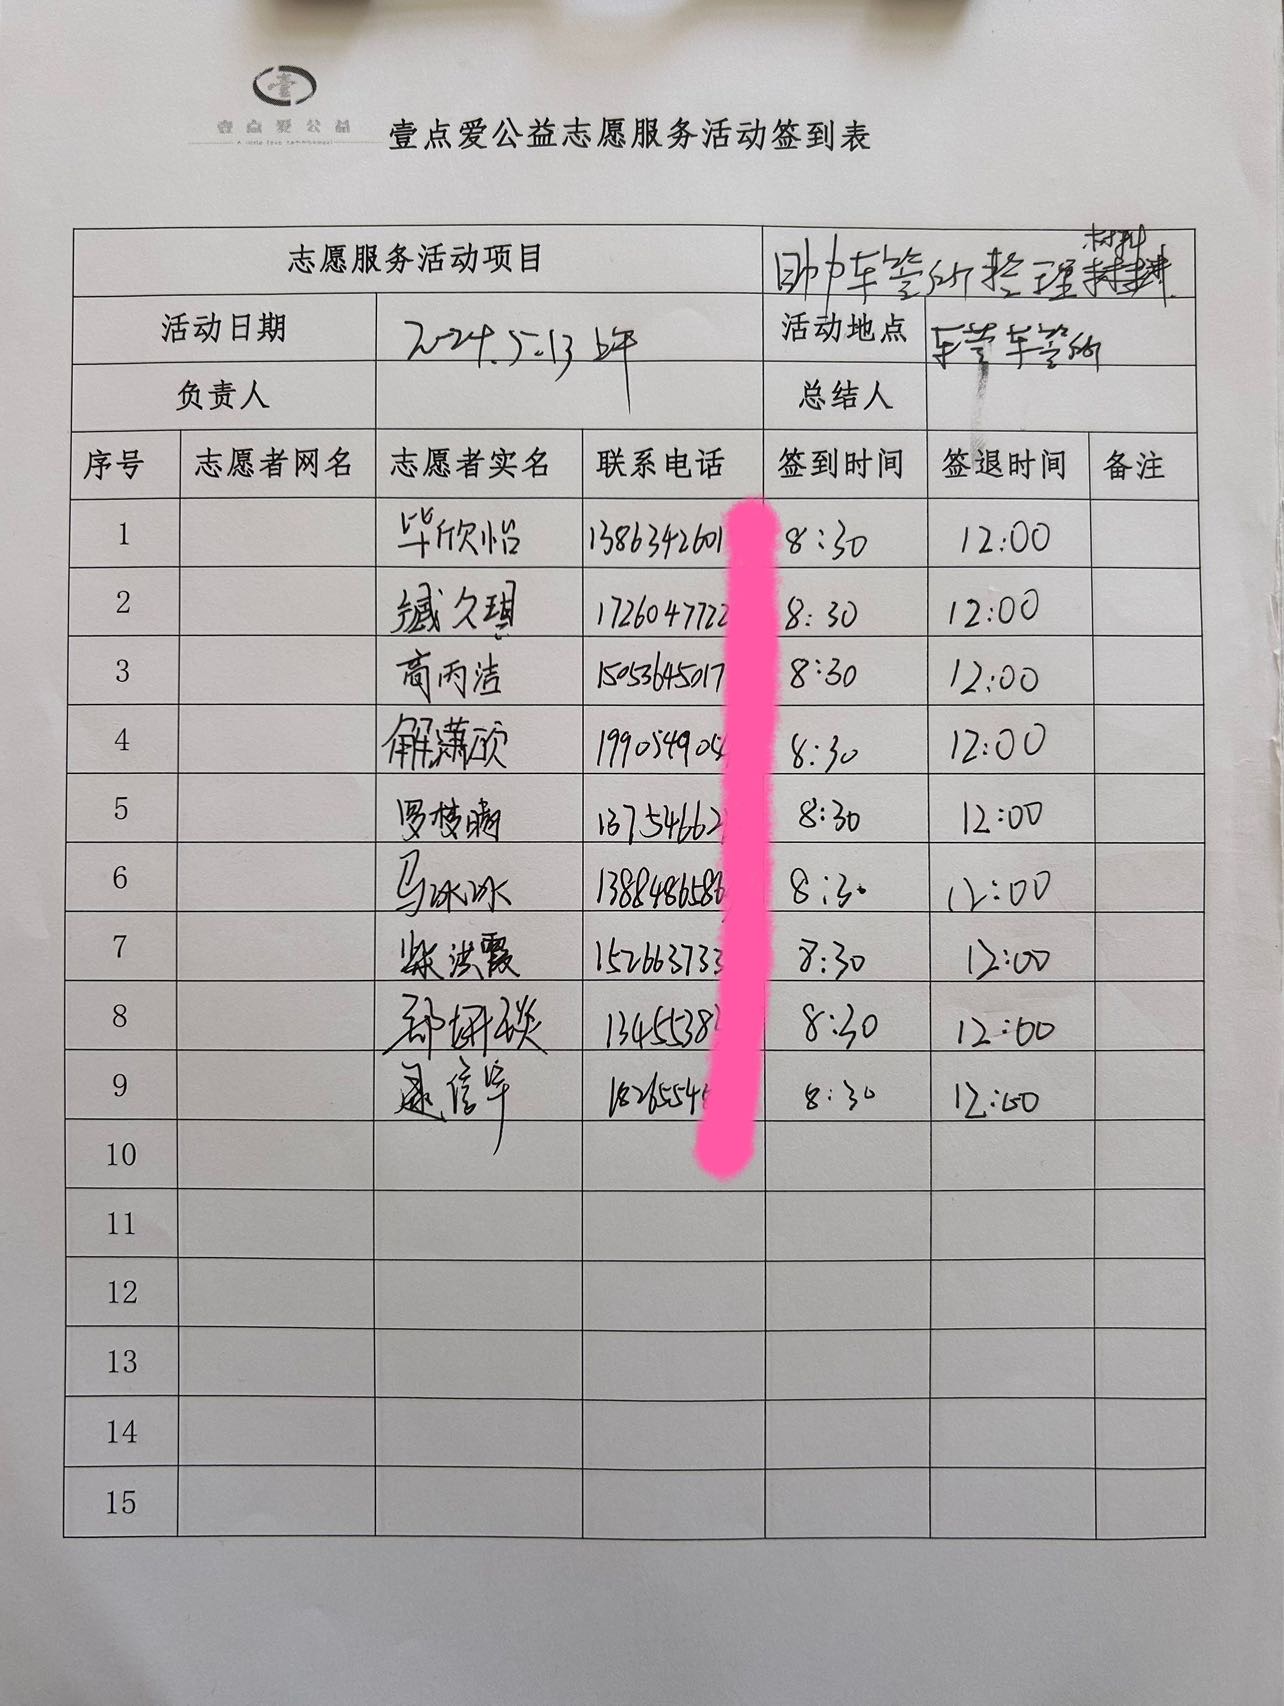 壹
壹点爱公益
壹点爱公益志愿服务活动签到表
志愿服务活动项目 助车管所整理材料
活动日期 2024.5.13 上午 活动地点 车管所
负责人 总结人
序号 志愿者网名 志愿者实名 联系电话 签到时间 签退时间 备注
1 毕欣怡 1386342601 8:30 12:00
2 臧久琪 1726047722 8:30 12:00
3 高丙洁 15053645017 8:30 12:00
4 解潇欣 199054905 8:30 12:00
5 罗梦晴 13754662 8:30 12:00
6 马冰冰 1388486586 8:30 12:00
7 柴洪霞 152663733 8:30 12:00
8 郑妍琰 1345538 8:30 12:00
9 信华 1826554 8:30 12:00
10
11
12
13
14
15